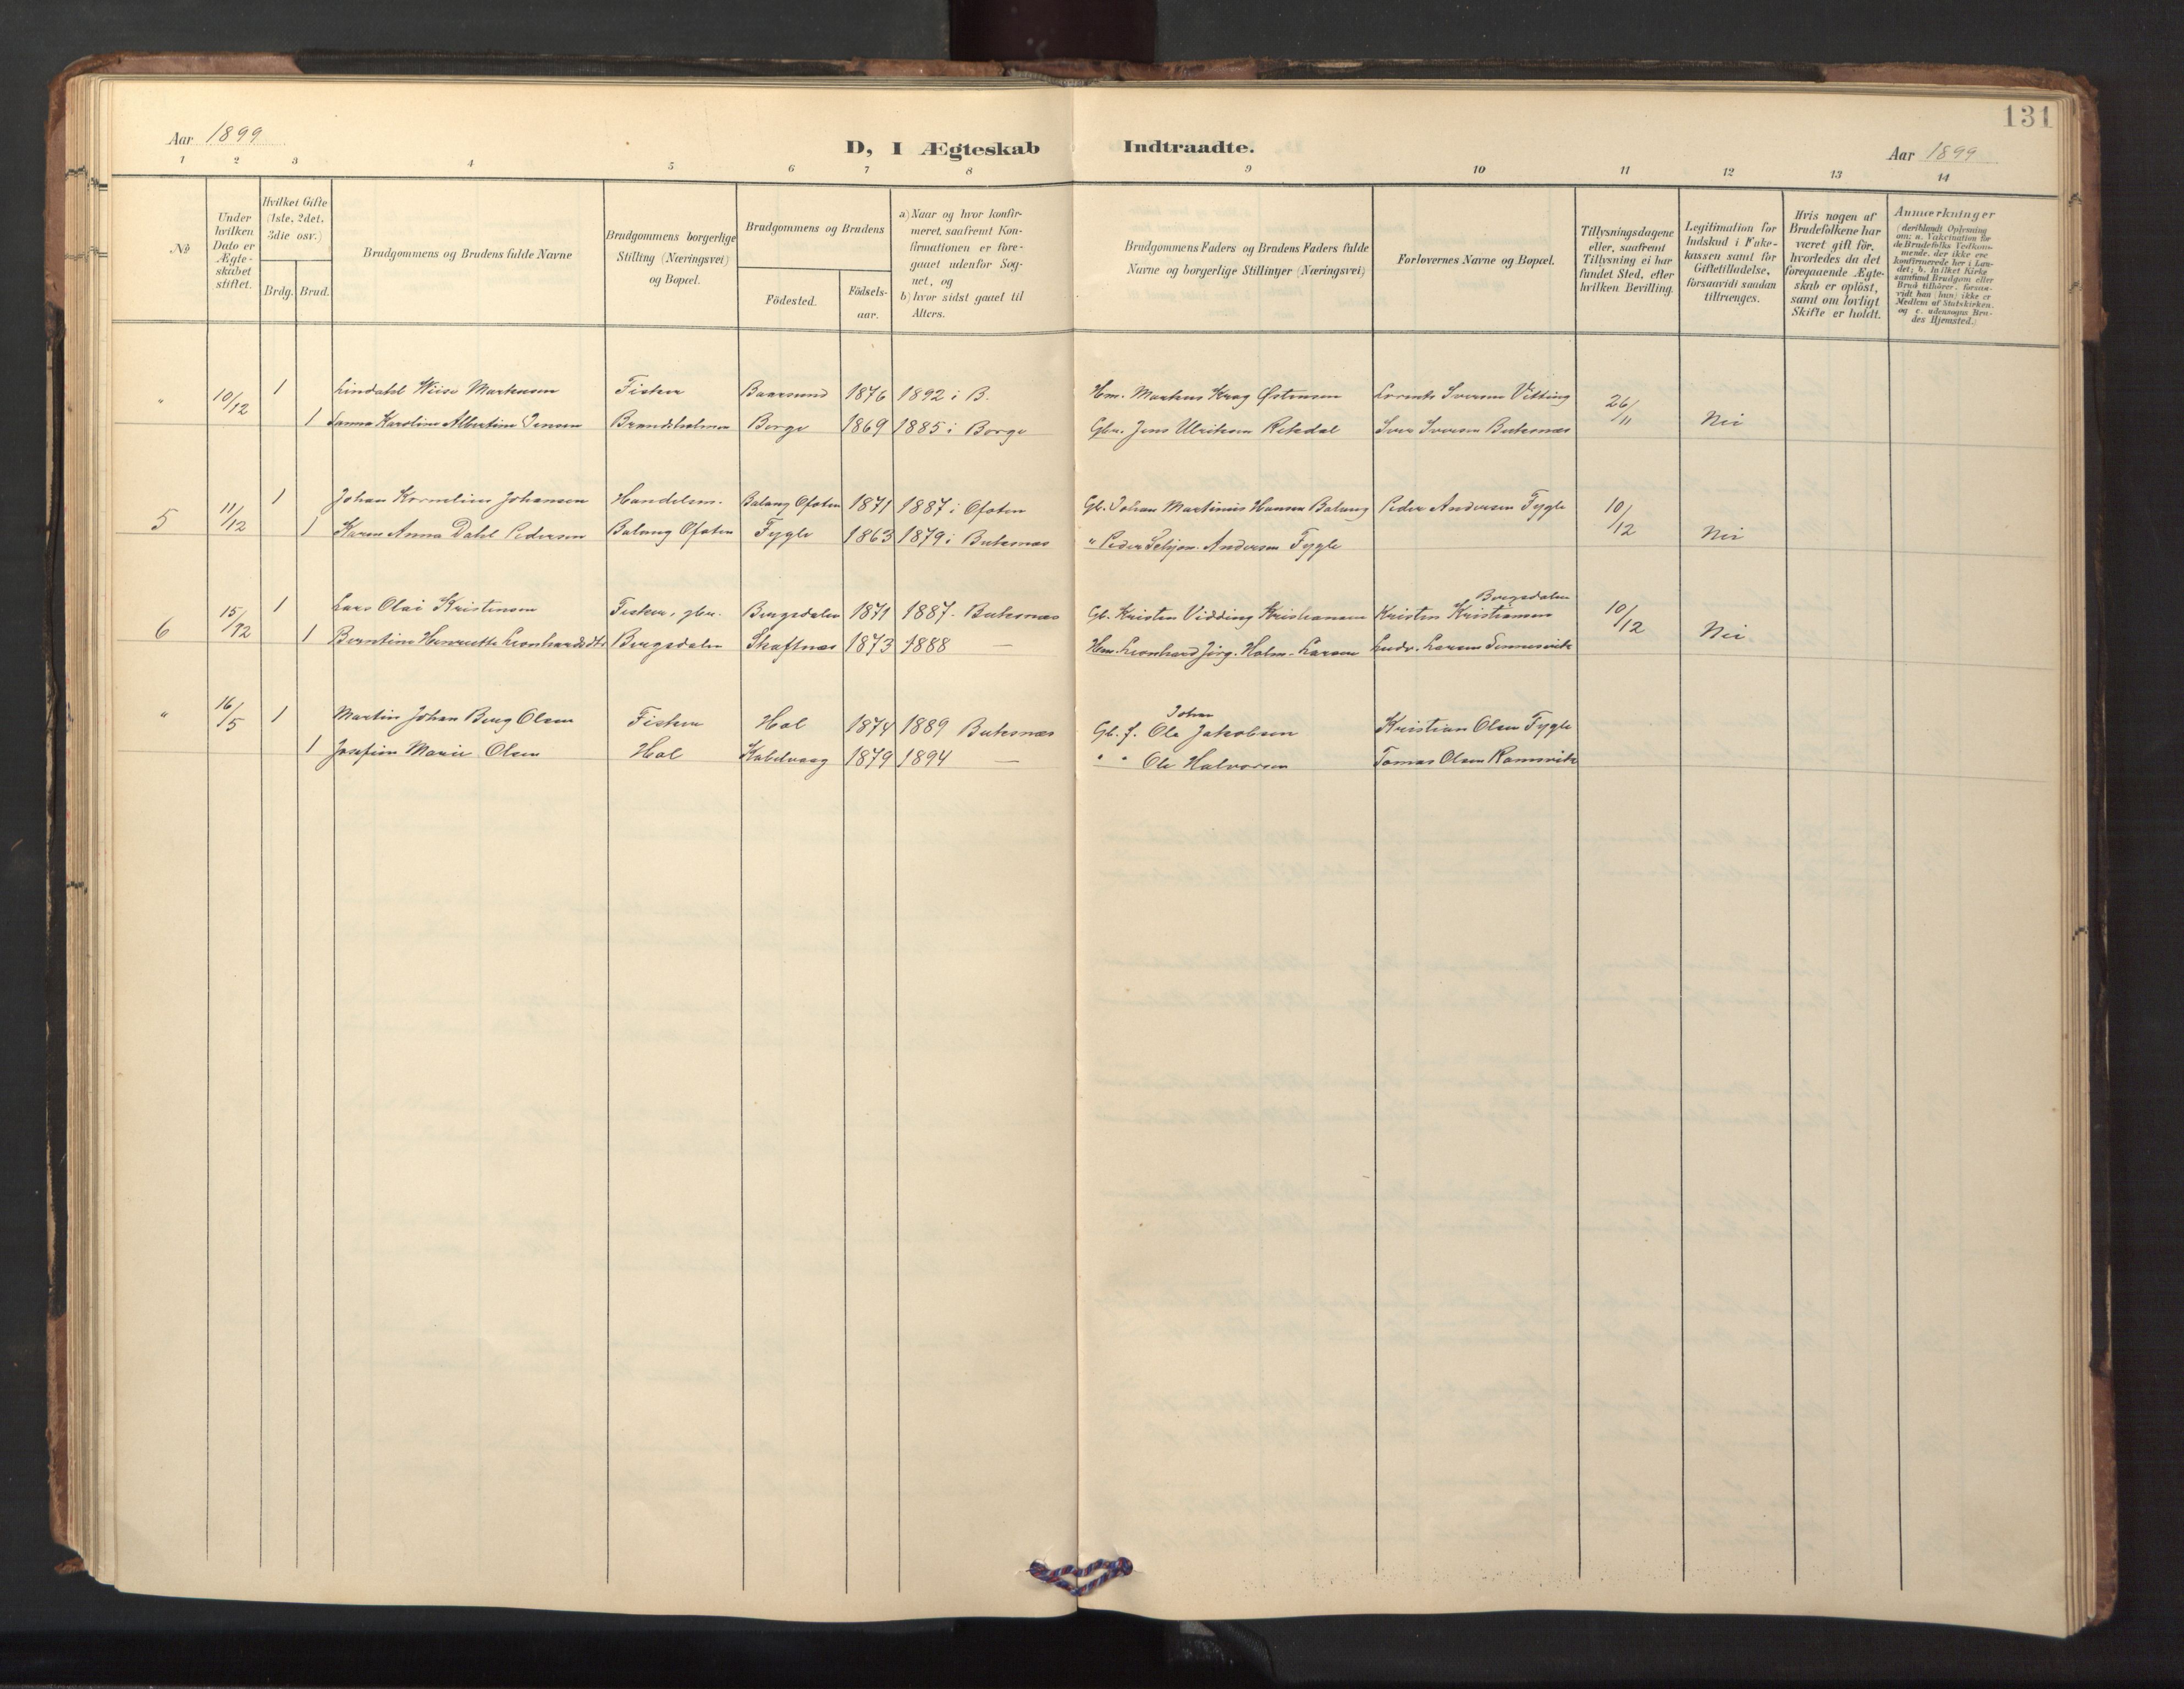 131
Aar 1899
D, I Ægteskab Indtraadte.
Aar 1899
1 2 3 4 5 6 7 8 9 10 11 12 13 14
No
Under hvilken Dato er Ægteskabet stiftet.
Hvilket Gifte (1ste, 2det, 3die osv.)
Brdg. Brud.
Brudgommens og Brudens fulde Navne
Brudgommens borgerlige Stilling (Næringsvei) og Bopæl.
Brudgommens og Brudens
Födested.
Födsels-aar.
a) Naar og hvor konfir-
meret, saafremt Kon-
firmationen er fore-
gaaet udenfor Sog-
net, og
b) hvor sidst gaaet til
Alters.
Brudgommens Faders og Brudens Faders fulde
Navne og borgerlige Stillinger (Næringsvei)
Forlovernes Navne og Bopæl.
Tillysningsdagene
eller, saafremt
Tillysning ei har
fundet Sted, efter
hvilken Bevilling.
Legitimation for
Indskud i Enke-
kassen samt for
Giftetilladelse,
forsaavidt saadan
tiltrænges.
Hvis nogen af
Brudefolkene har
været gift för,
hvorledes da det
foregaaende Ægte-
skab er oplöst,
samt om lovligt
Skifte er holdt.
Anmærkninger
(deriblandt Oplysning
om: a. Vakcination for
de Brudefolks Vedkom-
mende, der ikke ere
konfirmerede her i Lan-
det; b. hvilket Kirke-
samfund Brudgom eller
Brud tilhörer, forsaa-
vidt han (hun) ikke er
Medlem af Statskirken,
og c. udensogns Bru-
des Hjemsted.)
" 10/12 1 Lindahl Wiise Martensen Fisker Baarsund 1876 1892 i B. Hm. Martens Krog Østensen Lorents Iversen Vitting 26/11 Nei
1 Sanna Karoline Albertine Jensen Brandsholmen Borge 1869 1885 i Borge Gbr. Jens Ulriksen Retsdal Iver Iversen Buksnæs
5 11/12 1 Johan Kornelius Johansen Handelsm. Balang Ofoten 1871 1887 i Ofoten Gb. Johan Martinius Hansen Balang Peder Andersen Fygle 10/12 Nei
1 Karen Anna Dahl Pedersen Balang Ofoten Fygle 1863 1879 i Buksnæs " Peder Andersen Fygle
6 15/12 1 Lars Olai Kristensen Fisker, gbr. Bergsdalen 1871 1887 - Buksnæs Gb. Kristen Vidding Kristiansen Kristen Kristiansen Bergsdalen 10/12 Nei
1 Berntine Henriette Leonhardsdtr Bergsdalen Skaftnæs 1873 1888 — Hm. Leonhard Jörg. Holm. Larsen Ludv. Larsen Sennesvik
" 16/5 1 Martin Johan Berg Olsen Fisker Hol 1874 1889 Buksnæs Gb. f. Ole Johan Jakobsen Kristian Olsen Fygle
1 Josefine Marie Olsen Hol Kabelvaag 1879 1894 — " " Ole Halvorsen Tomas Olsen Ramsvik